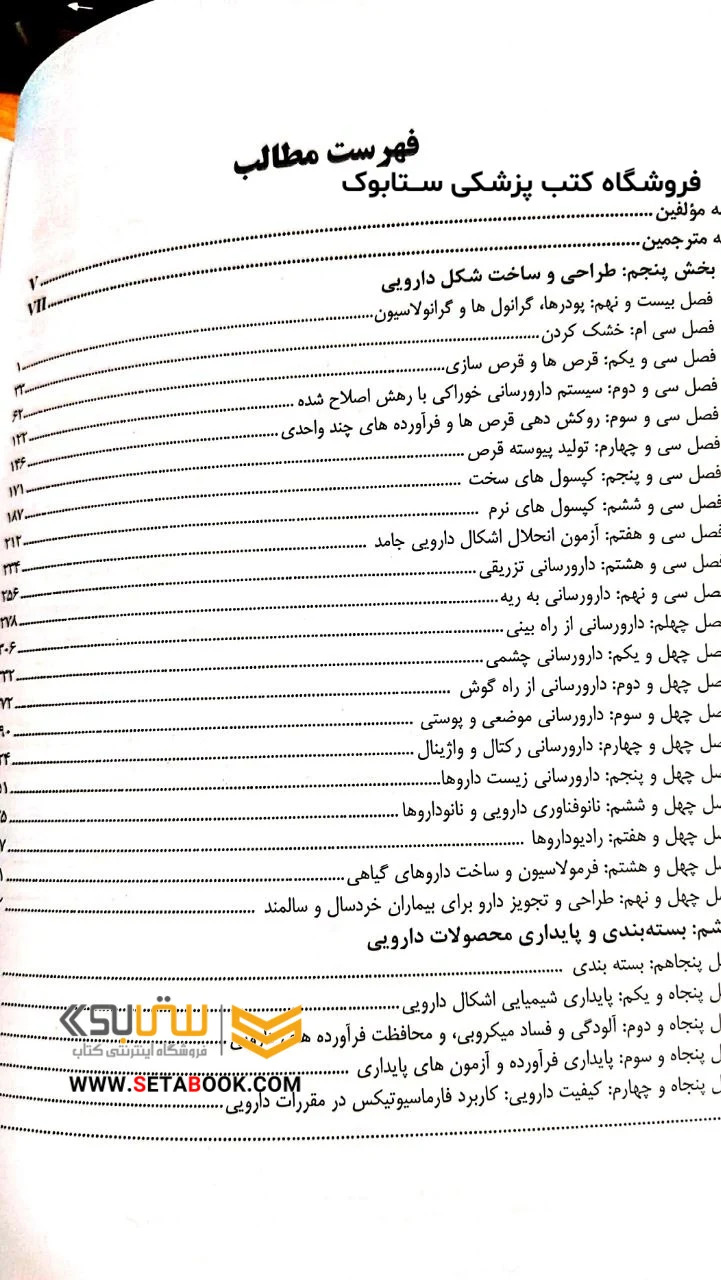 فهرست مطالب
فروشگاه کتب پزشکی ستابوک
مؤلفین ........ V
مترجمین ........ VII
بخش پنجم: طراحی و ساخت شکل دارویی
فصل بیست و نهم: پودرها، گرانول ها و گرانولاسیون ........ ۱
فصل سی ام: خشک کردن ........ ۳۳
فصل سی و یکم: قرص ها و قرص سازی ........ ۶۲
فصل سی و دوم: سیستم دارورسانی خوراکی با رهش اصلاح شده ........ ۱۲۲
فصل سی و سوم: روکش دهی قرص ها و فرآورده های چند واحدی ........ ۱۴۶
فصل سی و چهارم: تولید پیوسته قرص ........ ۱۷۱
فصل سی و پنجم: کپسول های سخت ........ ۱۸۷
فصل سی و ششم: کپسول های نرم ........ ۲۱۲
فصل سی و هفتم: آزمون انحلال اشکال دارویی جامد ........ ۲۳۴
فصل سی و هشتم: دارورسانی تزریقی ........ ۲۵۶
صل سی و نهم: دارورسانی به ریه ........ ۲۷۸
صل چهلم: دارورسانی از راه بینی ........ ۳۰۶
صل چهل و یکم: دارورسانی چشمی
صل چهل و دوم: دارورسانی از راه گوش
صل چهل و سوم: دارورسانی موضعی و پوستی
صل چهل و چهارم: دارورسانی رکتال و واژینال
صل چهل و پنجم: دارورسانی زیست داروها
صل چهل و ششم: نانوفناوری دارویی و نانوداروها
صل چهل و هفتم: رادیوداروها
صل چهل و هشتم: فرمولاسیون و ساخت داروهای گیاهی
صل چهل و نهم: طراحی و تجویز دارو برای بیماران خردسال و سالمند
شم: بسته‌بندی و پایداری محصولات دارویی
ل پنجاهم: بسته بندی
ل پنجاه و یکم: پایداری شیمیایی اشکال دارویی
ل پنجاه و دوم: آلودگی و فساد میکروبی، و محافظت فرآورده
ل پنجاه و سوم: پایداری فرآورده و آزمون های پایداری
ل پنجاه و چهارم: کیفیت دارویی: کاربرد فارماسیوتیکس در مقررات دارویی
ستابوک
فروشگاه اینترنتی کتاب
WWW.SETABOOK.COM